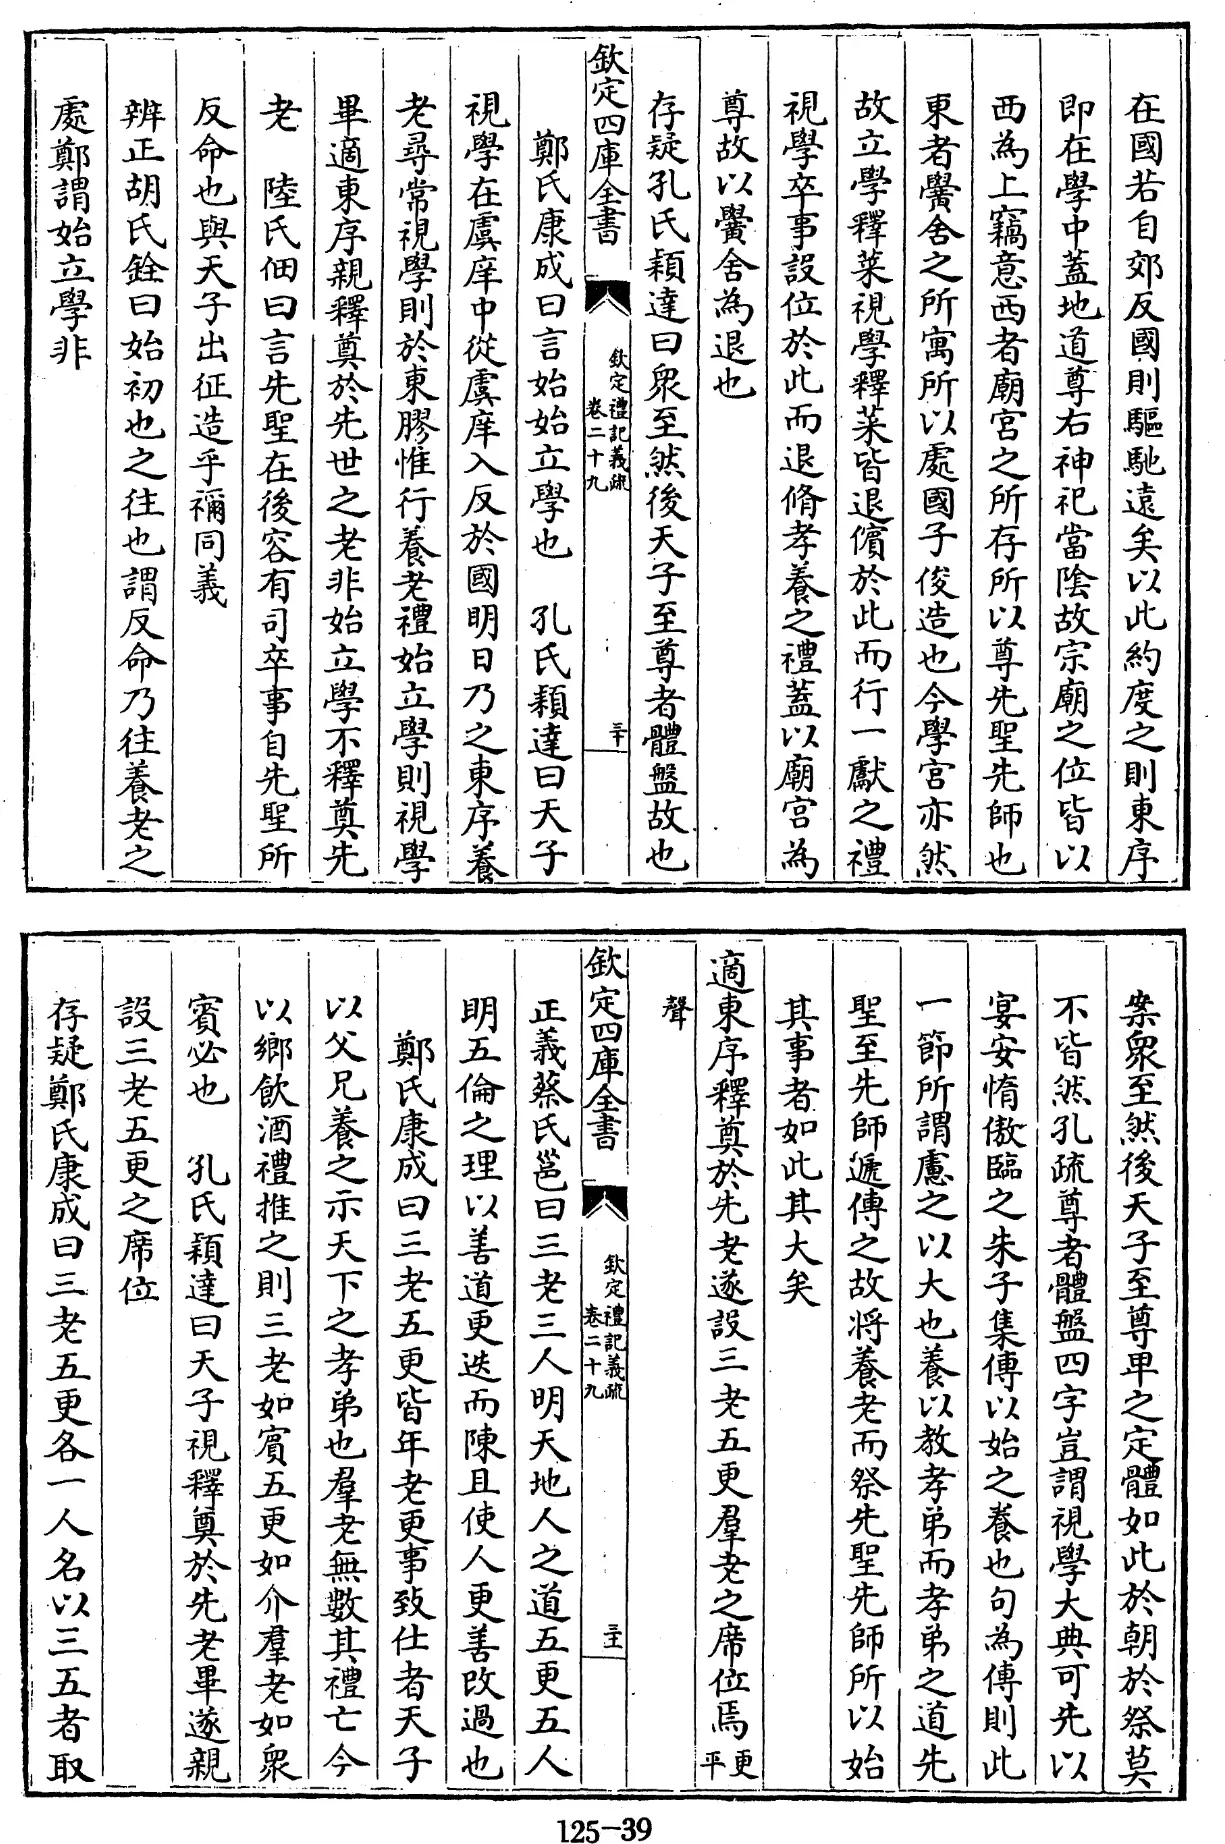 在國若自郊反國則驅馳遠矣以此約度之則東序
即在學中蓋地道尊右神祀當陰故宗廟之位皆以
西為上竊意西者廟宮之所存所以尊先聖先師也
東者黌舍之所寓所以處國子俊造也今學宮亦然
故立學釋菜視學釋菜皆退儐於此而行一獻之禮
視學卒事設位於此而退脩孝養之禮蓋以廟宮為
尊故以黌舍為退也
存疑孔氏穎達曰衆至然後天子至尊者體盤故也
欽定四庫全書
欽定禮記義疏
卷二十九
三十
鄭氏康成曰言始始立學也 孔氏穎達曰天子
視學在虞庠中從虞庠入反於國明日乃之東序養
老尋常視學則於東膠惟行養老禮始立學則視學
畢適東序親釋奠於先世之老非始立學不釋奠先
老 陸氏佃曰言先聖在後容有司卒事自先聖所
反命也與天子出征造乎禰同義
辨正胡氏銓曰始初也之往也謂反命乃往養老之
處鄭謂始立學非
案衆至然後天子至尊卑之定體如此於朝於祭莫
不皆然孔疏尊者體盤四字豈謂視學大典可先以
宴安惰傲臨之朱子集傳以始之養也句為傳則此
一節所謂慮之以大也養以教孝弟而孝弟之道先
聖至先師遞傳之故將養老而祭先聖先師所以始
其事者如此其大矣
適東序釋奠於先老遂設三老五更羣老之席位焉 更平
聲
欽定四庫全書
欽定禮記義疏
卷二十九
三十一
正義蔡氏邕曰三老三人明天地人之道五更五人
明五倫之理以善道更迭而陳且使人更善改過也
鄭氏康成曰三老五更皆年老更事致仕者天子
以父兄養之示天下之孝弟也羣老無數其禮亡今
以鄉飲酒禮推之則三老如賓五更如介羣老如衆
賓必也 孔氏穎達曰天子視釋奠於先老畢遂親
設三老五更之席位
存疑鄭氏康成曰三老五更各一人名以三五者取
125-39